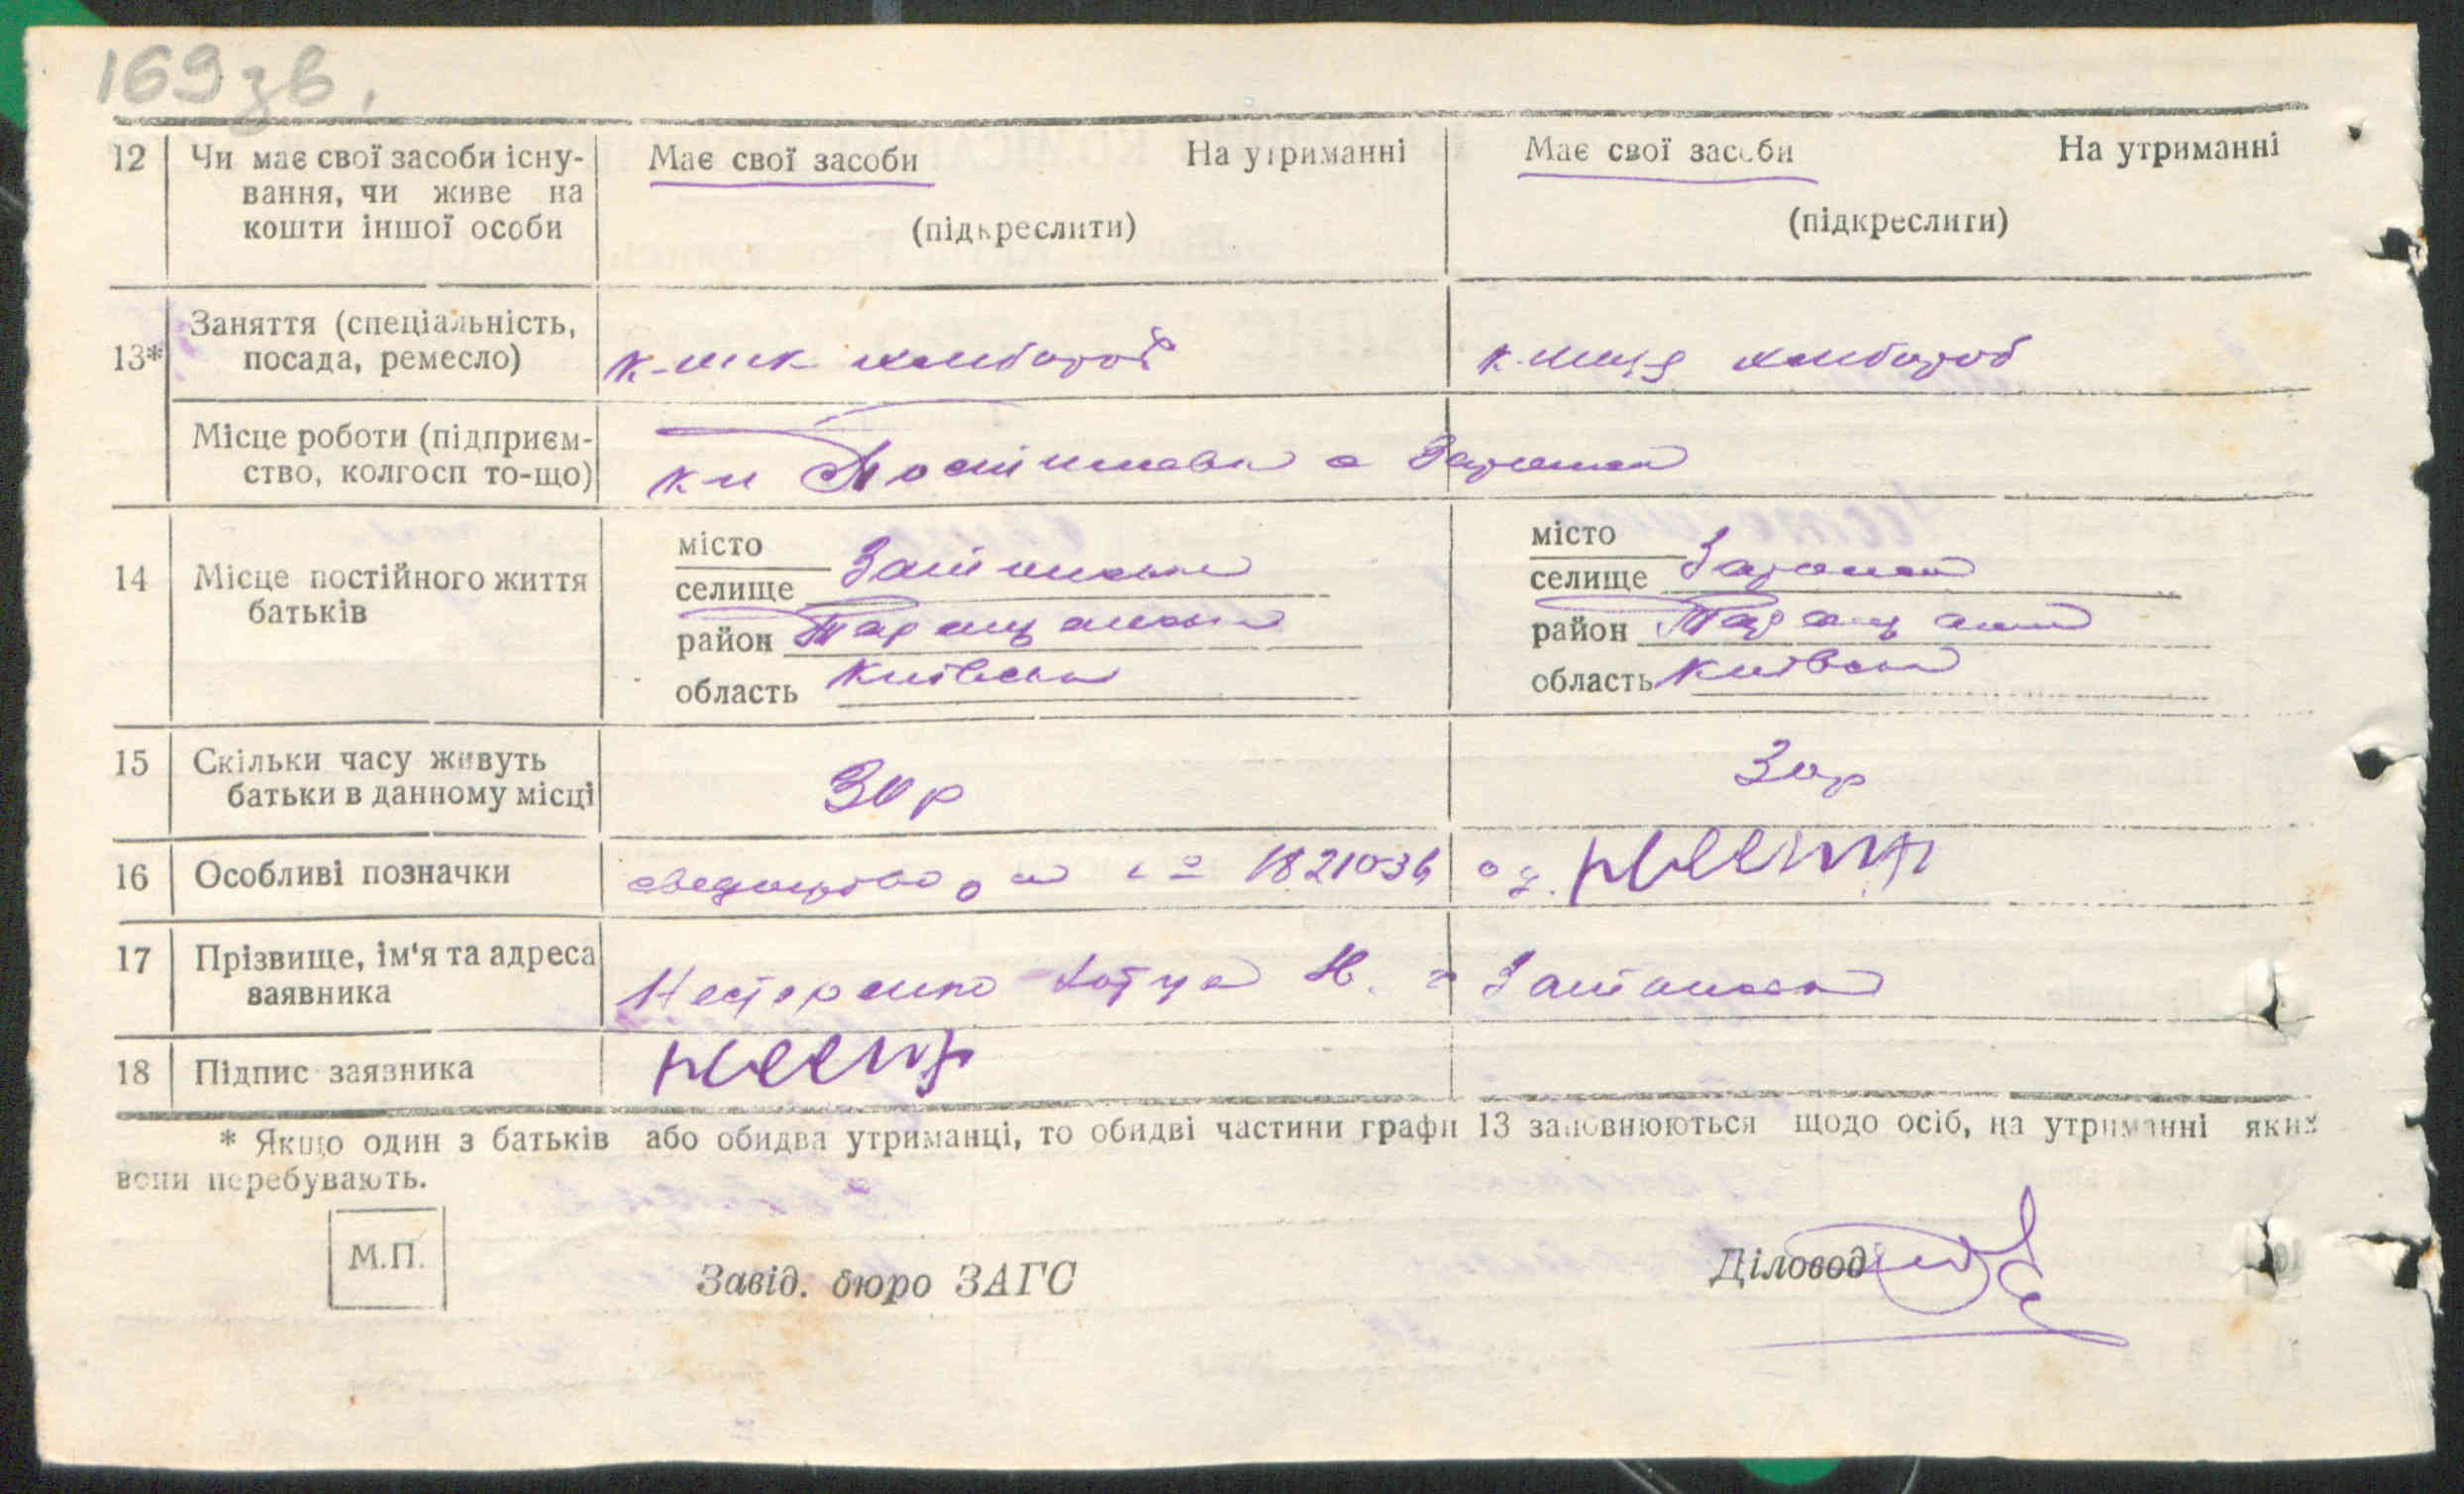 169 зв.
12 Чи має свої засоби існу- Має свої засоби На утриманні Має свої засоби На утриманні
вання, чи живе на
кошти іншої особи (підкреслити) (підкреслити)
Заняття (спеціальність,
13* посада, ремесло) к-ник хлібороб к-ниця хлібороб
Місце роботи (підприєм-
ство, колгосп то-що)
14 Місце постійного життя
батьків
місто
селище
район
область Київська
місто
селище
район
область Київська
15 Скільки часу живуть
батьки в данному місці 30 р 30 р
16 Особливі позначки 1821036
17 Прізвище, ім'я та адреса
заявника Нестеренко Н.
18 Підпис заявника
* Якщо один з батьків або обидва утриманці, то обидві частини графи 13 заповнюються щодо осіб, на утриманні яких
вони перебувають.
М.П.
Завід. бюро ЗАГС
Діловод